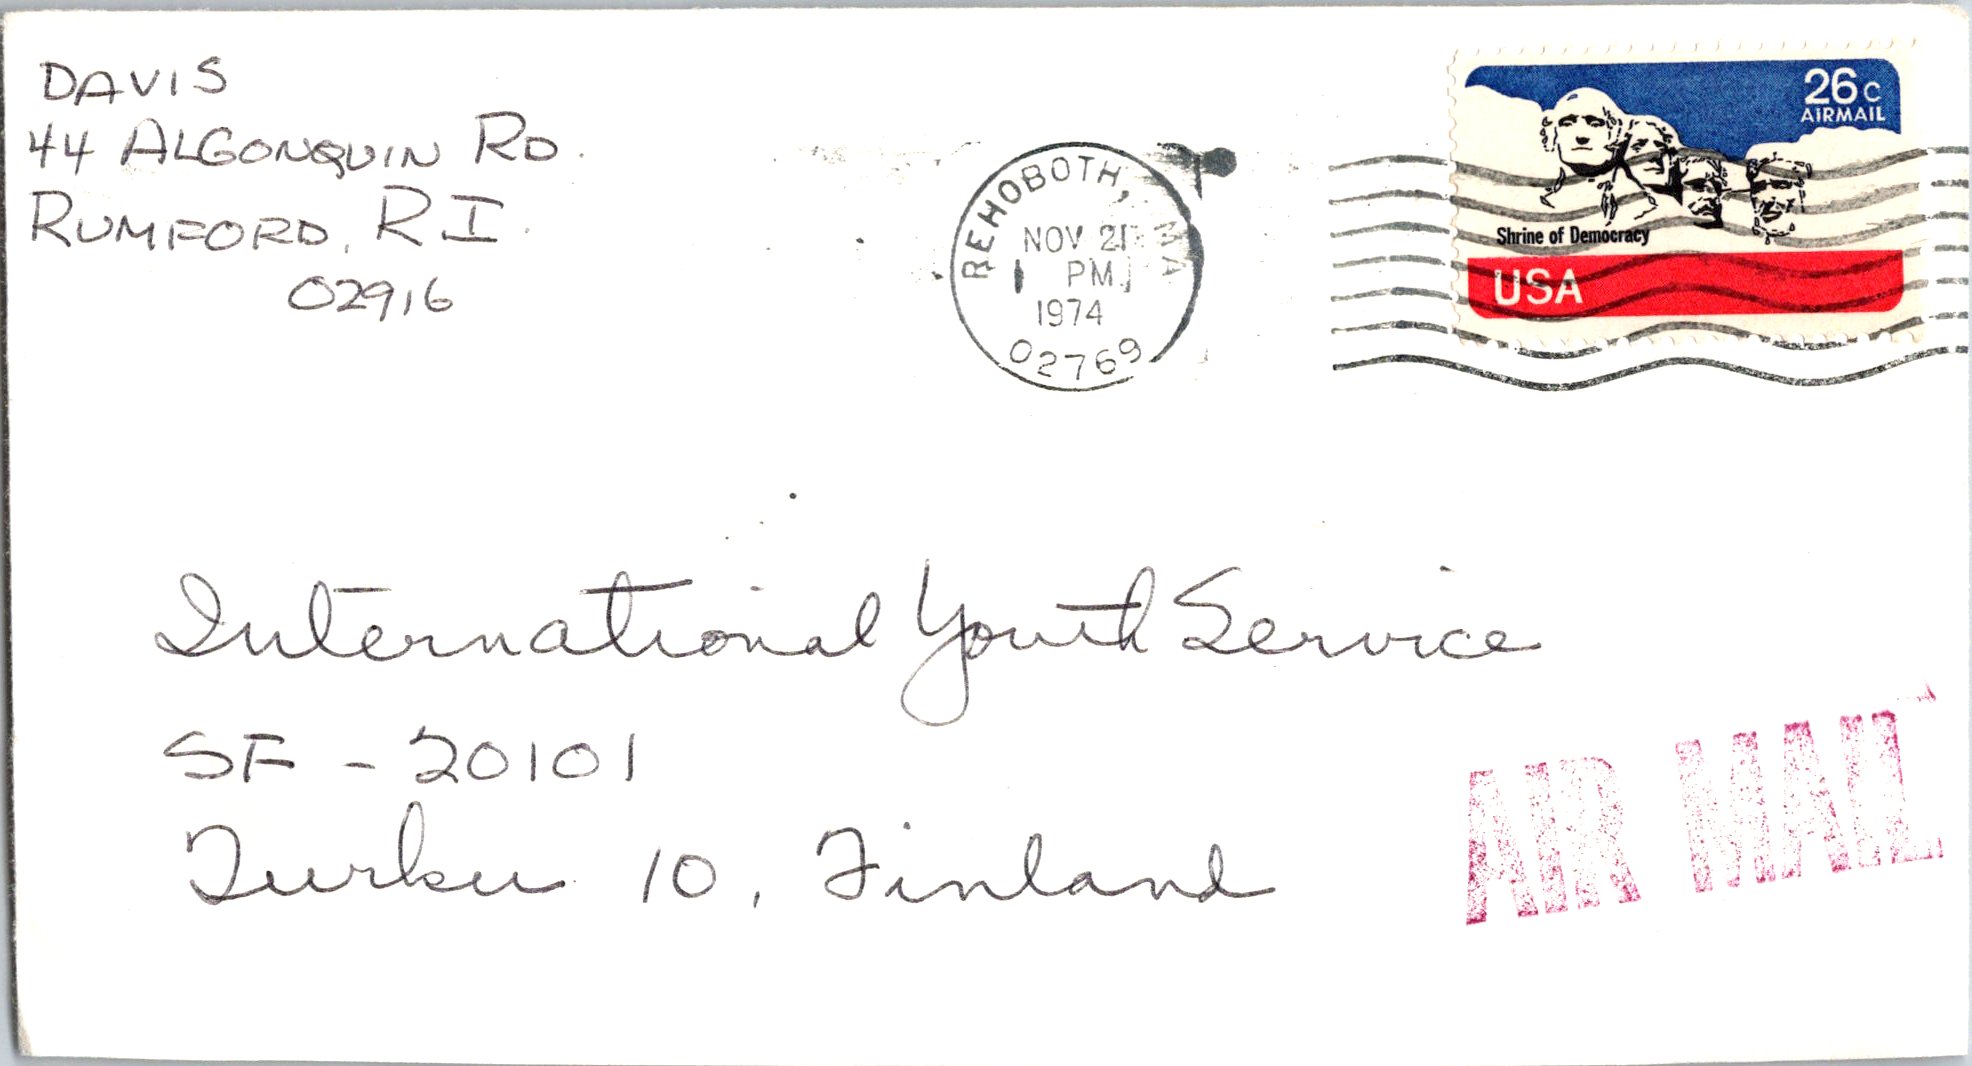 DAVIS
44 ALGONQUIN RD.
RUMFORD, R.I.
02916
REHOBOTH, MA
NOV 21
PM
1974
02769
26c
AIRMAIL
Shrine of Democracy
USA
International Youth Service
SF - 20101
Turku 10, Finland
AIR MAIL